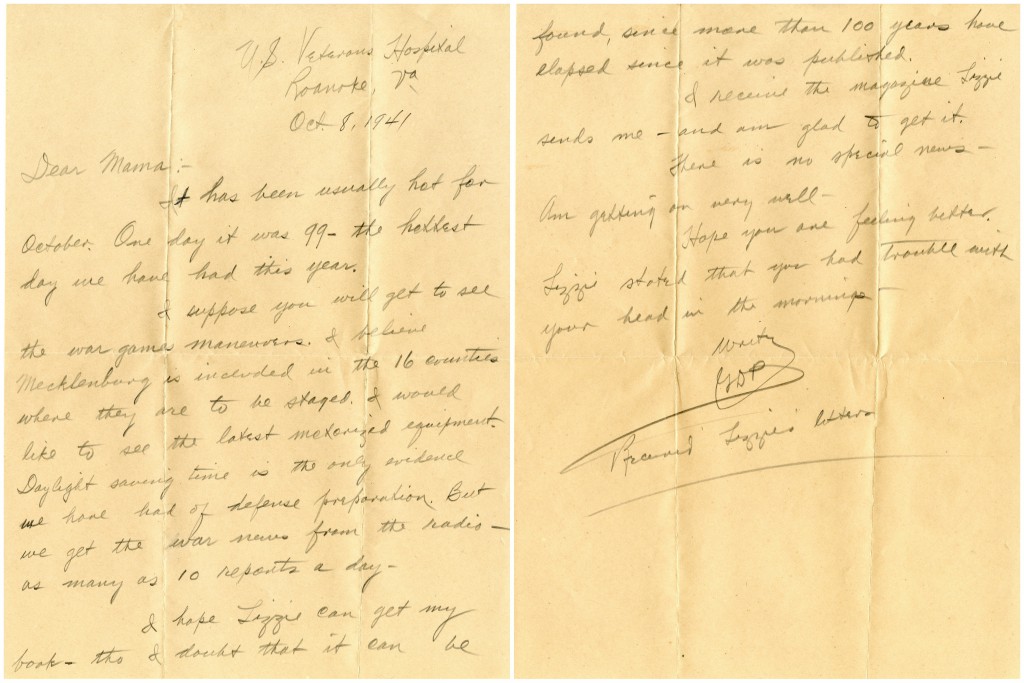 U.S. Veterans Hospital
Roanoke, Va
Oct. 8, 1941
Dear Mama:-
It has been usually hot for
October. One day it was 99- the hottest
day we have had this year.
I suppose you will get to see
the war game maneuvers. I believe
Mecklenburg is included in the 16 counties
where they are to be staged. I would
like to see the latest motorized equipment.
Daylight saving time is the only evidence
we have had of defense preparation. But
we get the war news from the radio-
as many as 10 reports a day-
I hope Lizzie can get my
book- tho I doubt that it can be
found, since more than 100 years have
elapsed since it was published.
I receive the magazine Lizzie
sends me - and am glad to get it.
There is no special news-
Am getting on very well-
Hope you are feeling better.
Lizzie stated that you had trouble with
your head in the mornings-
Write
Received Lizzie's letters